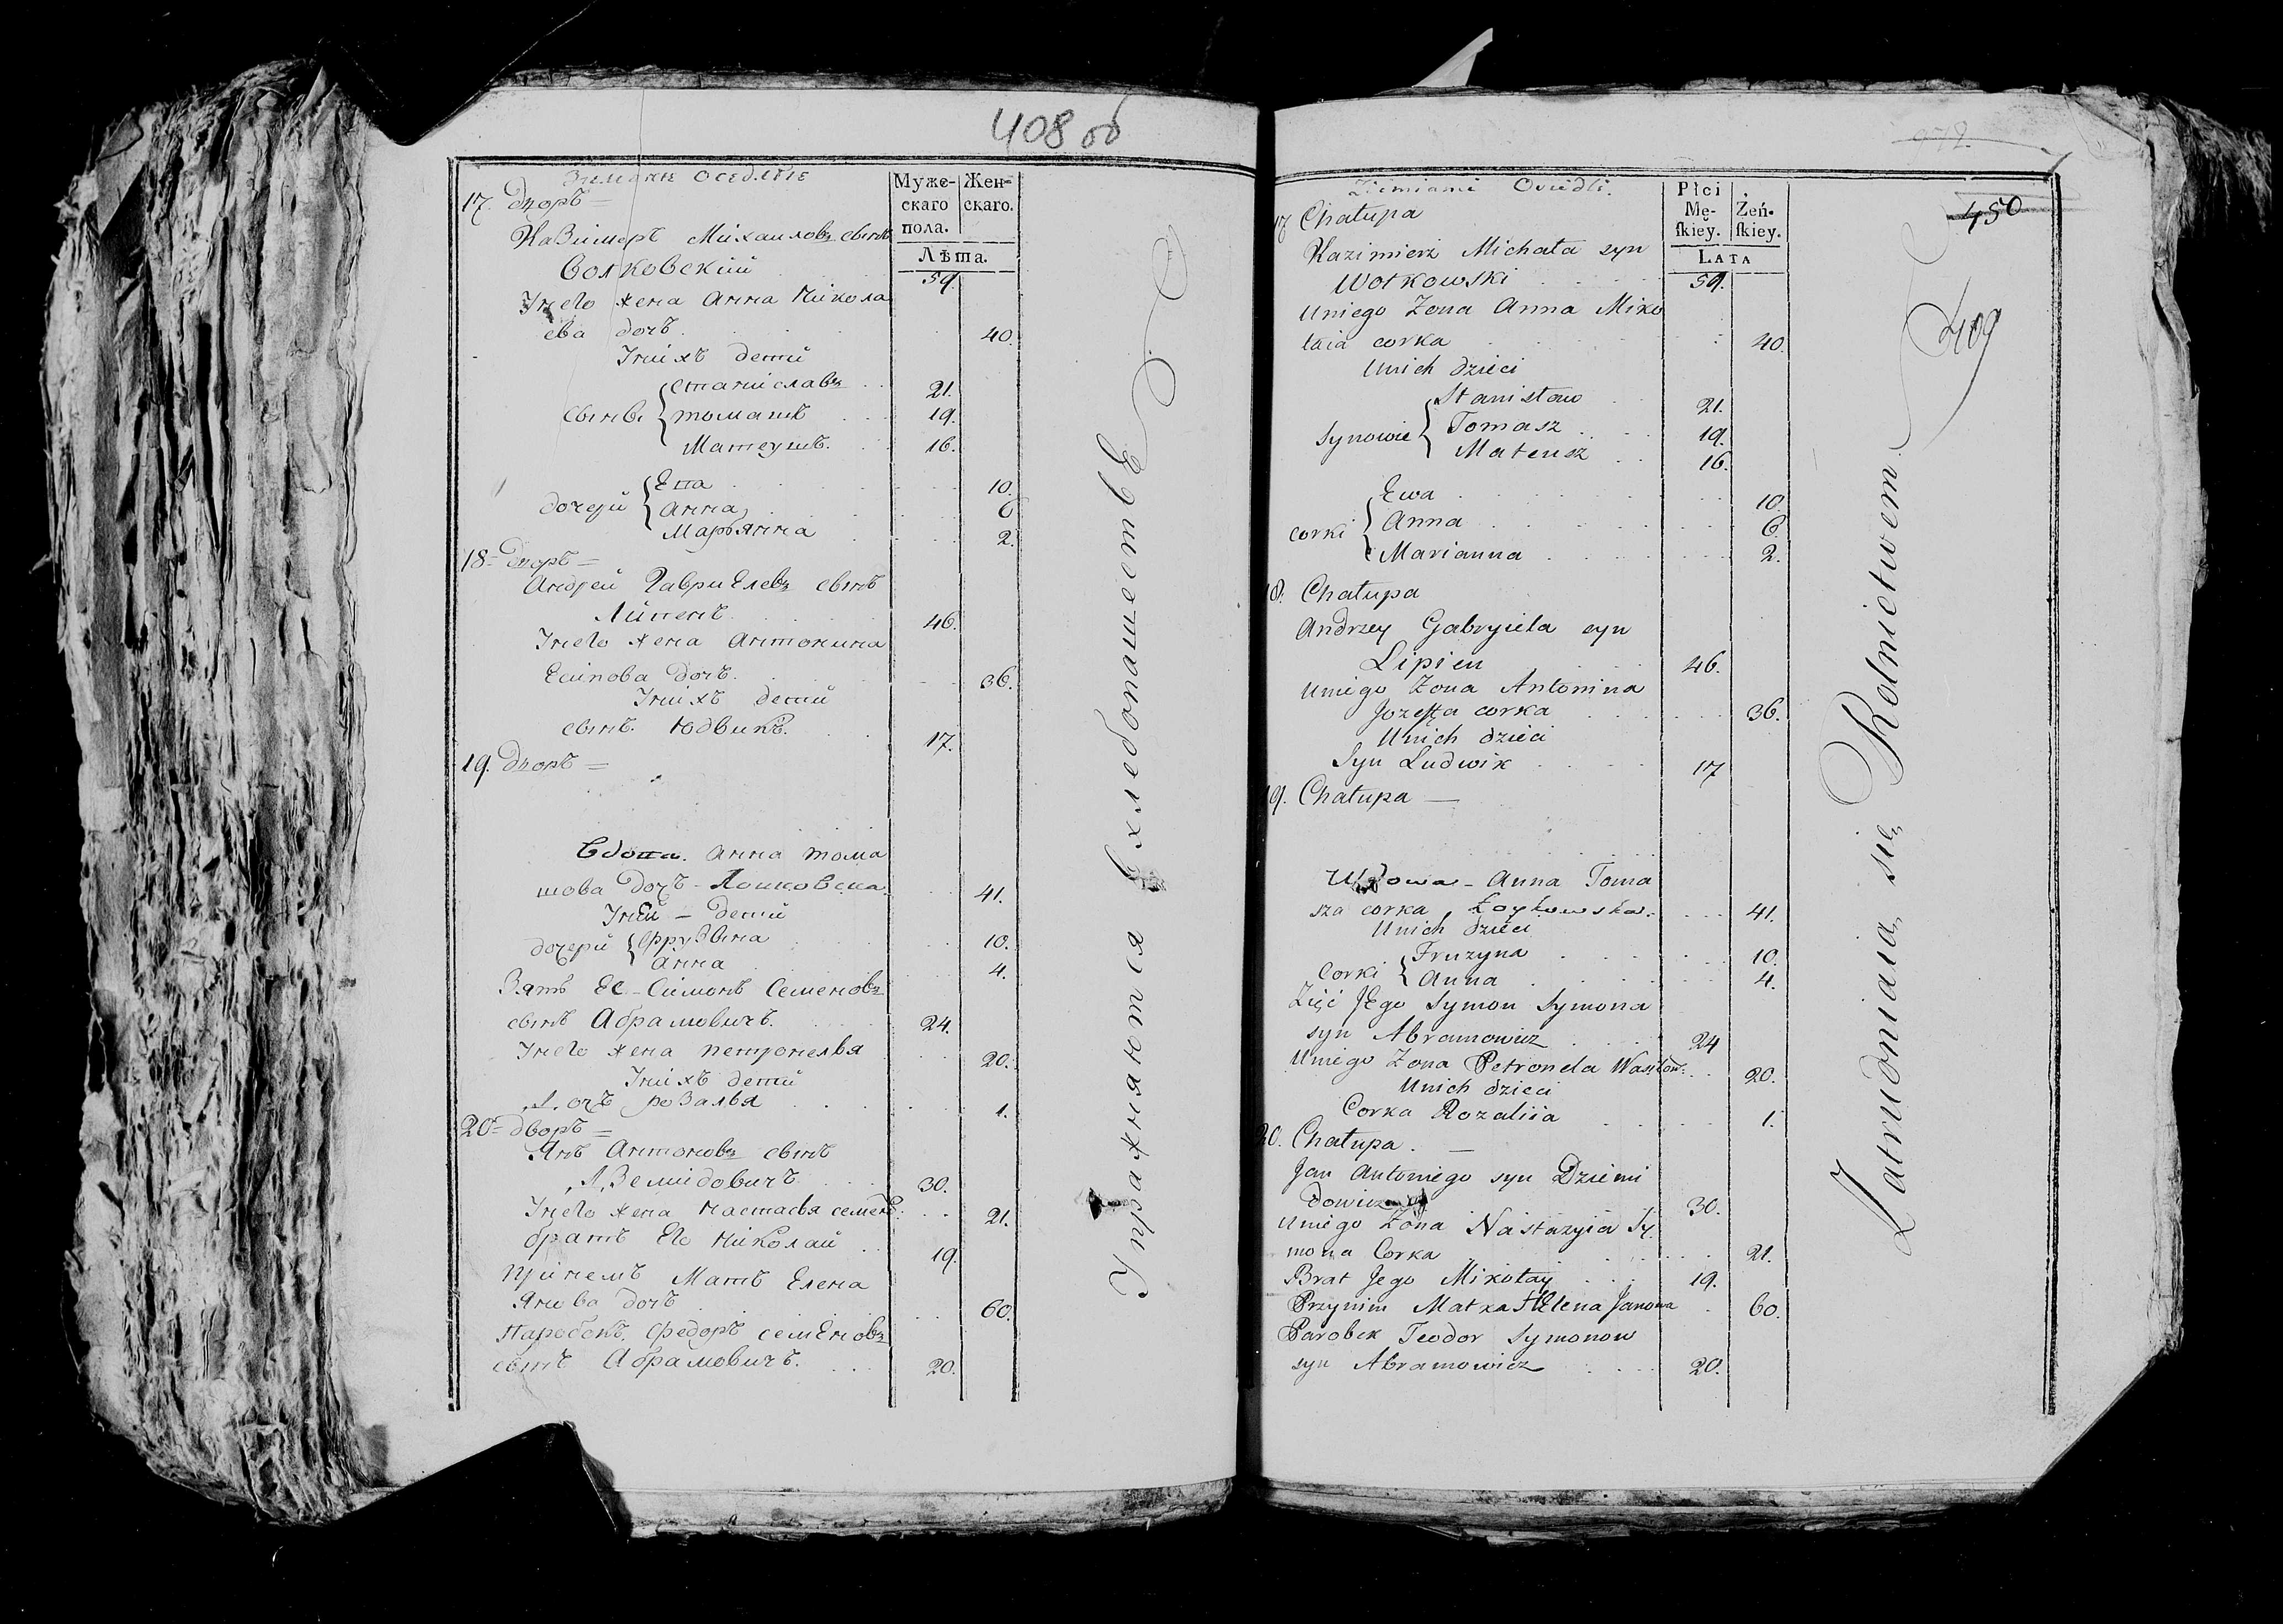 408 об
Земяне оседлые
Муже-
скаго
пола.
Жен-
скаго.
Лѣта.
17. Дворъ =
Казимеръ Михаиловъ сынъ
Волковский 59.
У него жена Анна Никола
ева дочъ 40.
У нихъ дети
Станиславъ 21.
сыны Томашъ 19.
Матеушъ. 16.
Ева 10.
дочери Анна 6
Марьянна 2.
18 = Дворъ =
Андрей Гавриелевъ сынъ
Липень 46.
У него жена Антонина
Есипова дочъ. 36.
У нихъ дети
сынъ. Юдвикъ. 17.
19. Дворъ =
Вдова. Анна Тома
шова дочъ - Лойковска 41.
У ней - дети
дочери Фрузына 10.
Анна 4.
Зять Ее - Симонъ Семеновъ
сынъ Абрамовичъ. 24.
У него жена Петронелья 20.
У нихъ дети
Дочъ розалья 1.
20 = дворъ =
Янъ Антоновъ сынъ
Дземидовичъ 30.
У него жена Настасья семен: 21.
братъ Его Николай 19.
При немъ Мать Елена
Янова дочъ 60.
Паробокъ Федоръ семеновъ
сынъ Абрамовичъ. 20.
Упражняются Вхлебопашестве
972.
450
409
Ziemianie Osiedli.
Płci
Mę-
ſkiey.
Żeń-
ſkiey.
LATA
17 Chałupa
Kazimierz Michała syn
Wołkowski 59.
Uniego Żona Anna Miko
łaia corka 40.
Unich dzieci
Stanisław 21.
Synowie Tomasz 19.
Mateusz 16.
Ewa 10.
corki Anna 6.
Marianna 2.
18. Chałupa
Andrzey Gabryiela syn
Lipień 46.
Uniego Żona Antonina
Jozefa corka 36.
Unich dzieci
Syn Ludwik 17
19. Chałupa —
Wdowa - Anna Toma
sza corka, Łoykowska. 41.
Unich dzieci
Fruzyna 10.
Corki Anna 4.
Zięć JEgo Symon Symona
syn Abramowicz 24
Uniego Żona Petronela Wasilow: 20.
Unich dzieci
Corka Rozaliia 1.
20. Chałupa. —
Jan Antoniego syn Dziemi
dowicz 30.
Uniego Żona Nastazyia Sy
mona Corka 21.
Brat Jego Mikołay 19.
Przynim Matka HElena Janowa 60.
Parobek Teodor Symonow
syn Abramowicz 20.
Zatrudniaią się Rolnictwem